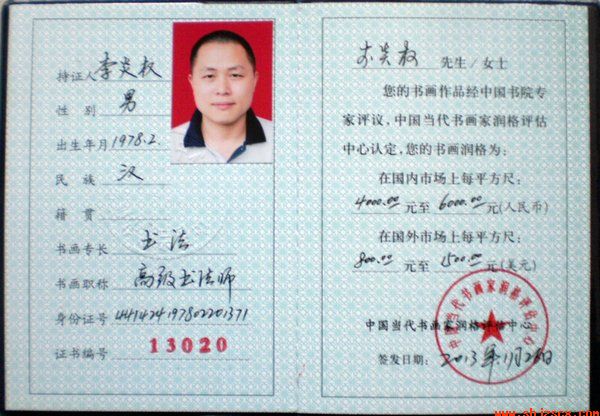 持证人 李炎权
性 别 男
出生年月 1978.2.
民 族 汉
籍 贯
书画专长 书法
书画职称 高级书法师
身份证号 441424197802201371
证书编号 13020
李炎权 先生/女士
您的书画作品经中国书院专
家评议,中国当代书画家润格评估
中心认定,您的书画润格为:
在国内市场上每平方尺:
4000.00 元至 6000.00 元(人民币)
在国外市场上每平方尺:
800.00 元至 1500.00 元(美元)
中国当代书画家润格评估中心
签发日期: 2013年11月26日
中国当代书画家润格评估中心